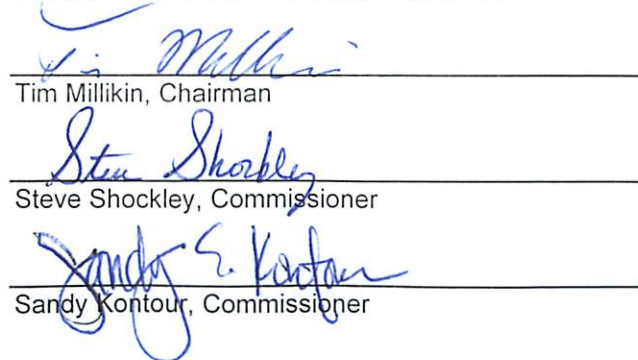 Tim Millikin
Tim Millikin, Chairman
Steve Shockley
Steve Shockley, Commissioner
Sandy E. Kontour
Sandy Kontour, Commissioner